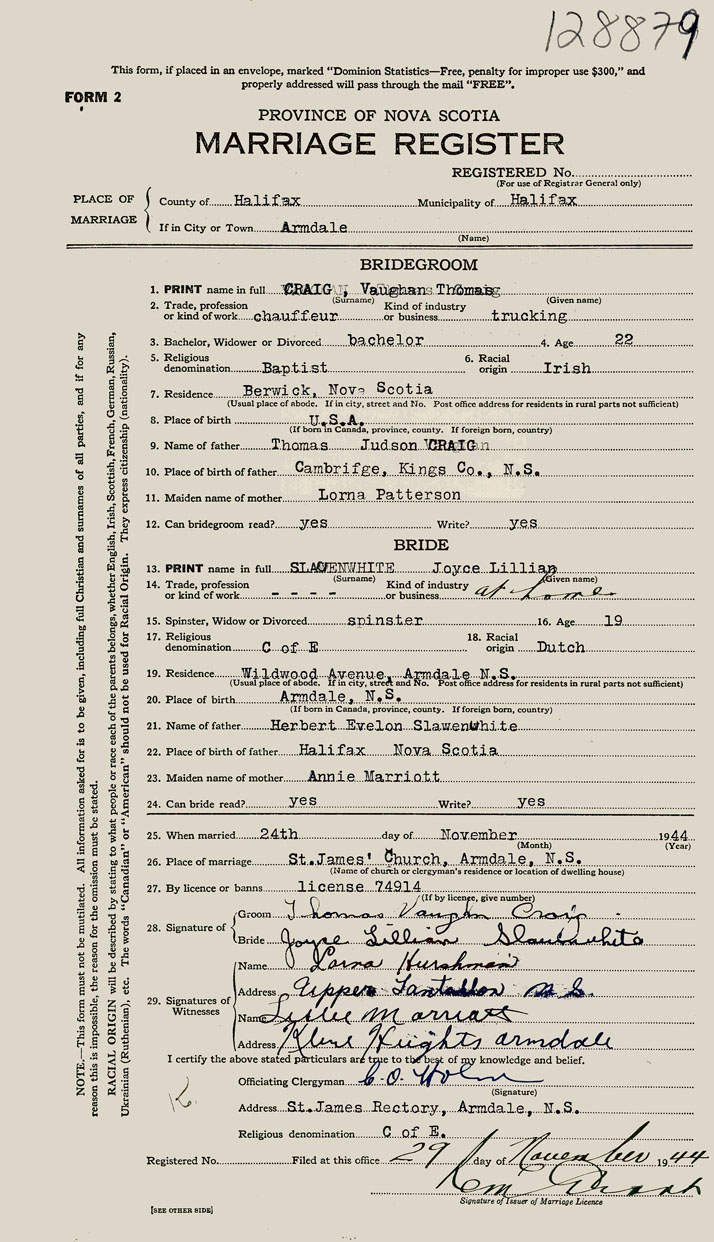 128879
This form, if placed in an envelope, marked "Dominion Statistics—Free, penalty for improper use $300," and
properly addressed will pass through the mail "FREE".
FORM 2
PROVINCE OF NOVA SCOTIA
MARRIAGE REGISTER
REGISTERED No.
(For use of Registrar General only)
PLACE OF MARRIAGE
County of Halifax Municipality of Halifax
If in City or Town Armdale
(Name)
BRIDEGROOM
1. PRINT name in full CRAIG, Vaughan Thomas
(Surname) (Given name)
2. Trade, profession or kind of work chauffeur Kind of industry or business trucking
3. Bachelor, Widower or Divorced bachelor 4. Age 22
5. Religious denomination Baptist 6. Racial origin Irish
7. Residence Berwick, Nova Scotia
(Usual place of abode. If in city, street and No. Post office address for residents in rural parts not sufficient)
8. Place of birth U.S.A.
(If born in Canada, province, county. If foreign born, country)
9. Name of father Thomas Judson CRAIG
10. Place of birth of father Cambrifge, Kings Co., N.S.
11. Maiden name of mother Lorna Patterson
12. Can bridegroom read? yes Write? yes
BRIDE
13. PRINT name in full SLAWENWHITE Joyce Lillian
(Surname) (Given name)
14. Trade, profession or kind of work - - - - Kind of industry or business at home
15. Spinster, Widow or Divorced spinster 16. Age 19
17. Religious denomination C of E 18. Racial origin Dutch
19. Residence Wildwood Avenue, Armdale N.S.
(Usual place of abode. If in city, street and No. Post office address for residents in rural parts not sufficient)
20. Place of birth Armdale, N.S.
(If born in Canada, province, county. If foreign born, country)
21. Name of father Herbert Evelon Slawenwhite
22. Place of birth of father Halifax Nova Scotia
23. Maiden name of mother Annie Marriott
24. Can bride read? yes Write? yes
25. When married 24th day of November 1944
(Month) (Year)
26. Place of marriage St.James' Church, Armdale, N.S.
(Name of church or clergyman's residence or location of dwelling house)
27. By licence or banns license 74914
(If by licence, give number)
28. Signature of Groom Thomas Vaughn Craig
Bride Joyce Lillian Slauenwhite
29. Signatures of Witnesses
Name Lorna Hurshman
Address Upper Tantallon N.S.
Name Leslie Marriott
Address Kline Heights Armdale
I certify the above stated particulars are true to the best of my knowledge and belief.
Officiating Clergyman
(Signature)
Address St.James Rectory, Armdale, N.S.
Religious denomination C of E.
Registered No. Filed at this office 29 day of November 1944
Signature of Issuer of Marriage Licence
[SEE OTHER SIDE]
NOTE.—This form must not be mutilated. All information asked for is to be given, including full Christian and surnames of all parties, and if for any
reason this is impossible, the reason for the omission must be stated.
RACIAL ORIGIN will be described by stating to what people or race each of the parents belongs, whether English, Irish, Scottish, French, German, Russian,
Ukrainian (Ruthenian), etc. The words "Canadian" or "American" should not be used for Racial Origin. They express citizenship (nationality).